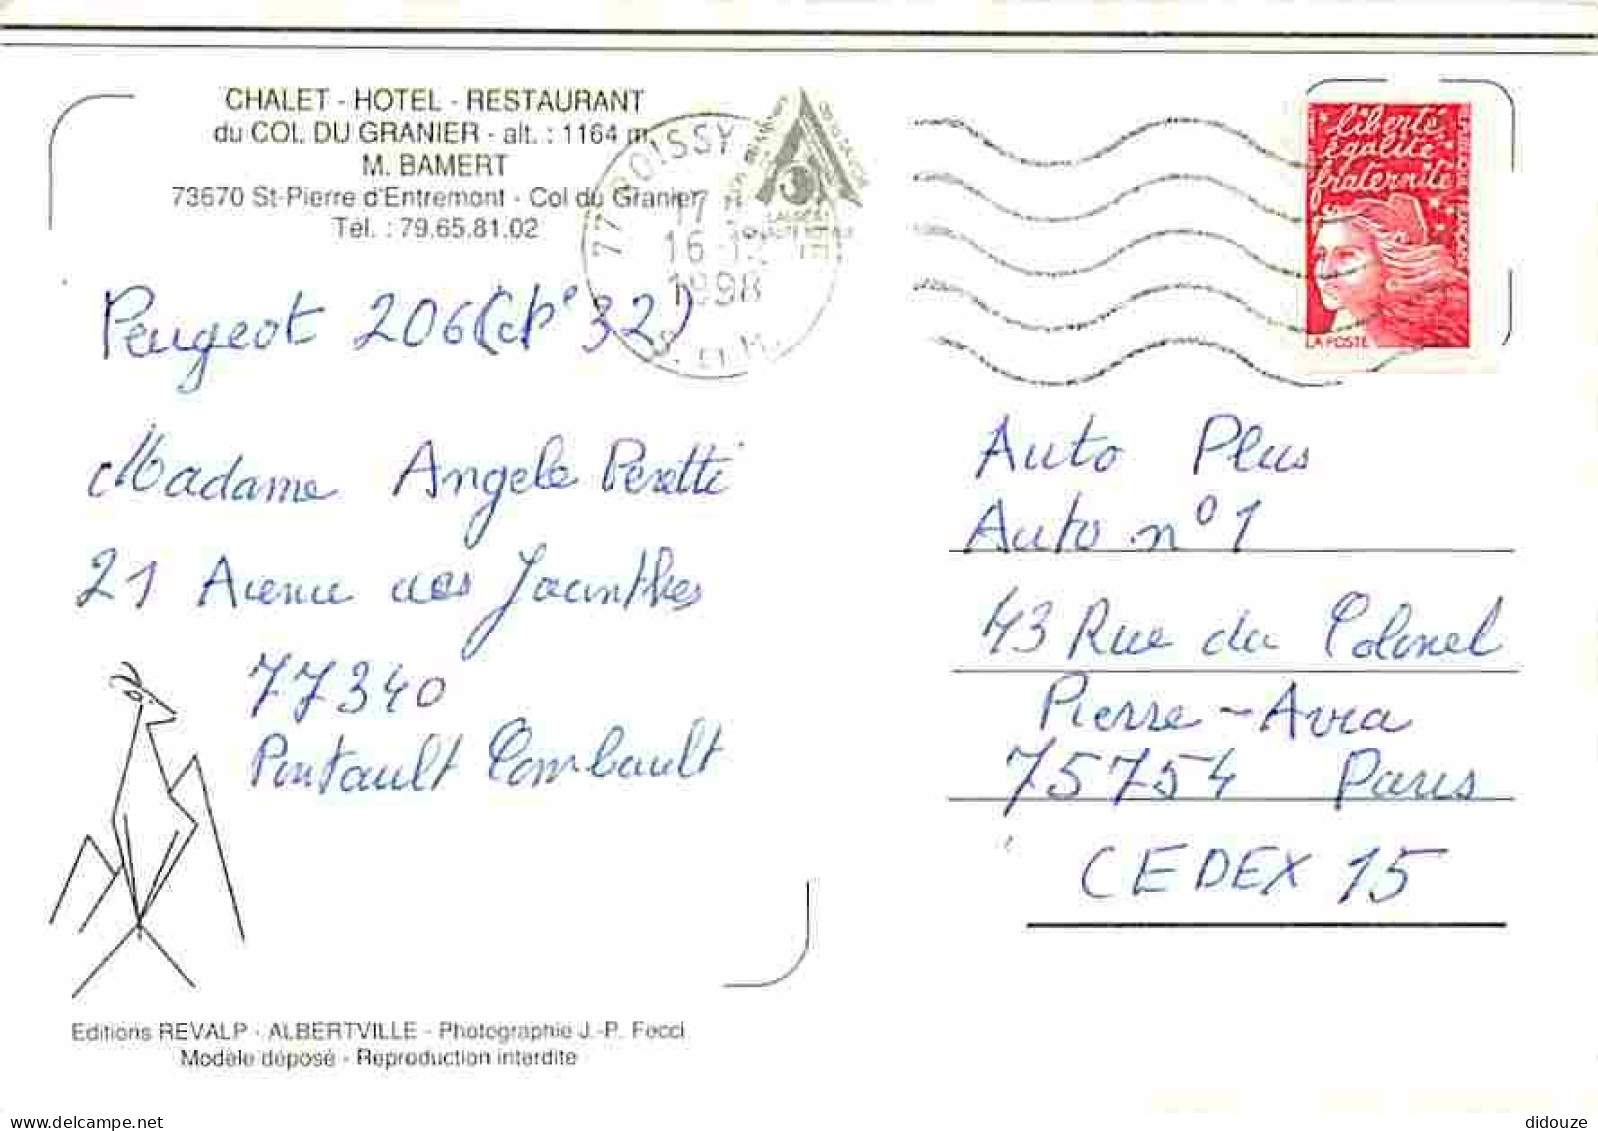 CHALET - HOTEL - RESTAURANT
du COL DU GRANIER - alt. : 1164 m
M. BAMERT
73670 St-Pierre d'Entremont - Col du Granier
Tél. : 79.65.81.02
77 ROISSY
17
16-12
1998
S. ET M.
liberté
égalité
fraternité
LA POSTE
Peugeot 206 (cp 32)
Madame Angele Peretti
21 Avenue des Jacinthes
77340
Pontault Combault
Auto Plus
Auto n° 1
43 Rue du Colonel
Pierre-Avia
75754 Paris
CEDEX 15
Editions REVALP - ALBERTVILLE - Photographie J.-P. Focci
Modèle déposé - Reproduction interdite
delcampe.net
didouze